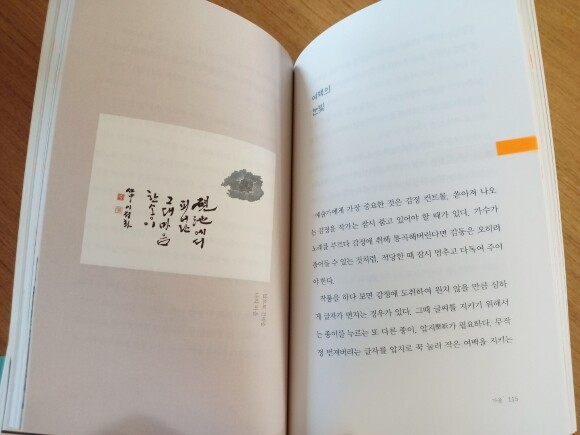 硯池에서
피어난
그대마음
한송이
여백의
눈빛
예술가에게 가장 중요한 것은 감정 컨트롤, 쏟아져 나오
는 감정을 직기는 잠시 품고 있어야 할 때가 있다. 가수가
노래를 부르다 감정에 취해 통곡해버린다면 감동은 오히려
줄어들 수 있는 것처럼, 적당한 때 잠시 멈추고 다독여 주어
야 한다.
작품을 하다 보면 감정에 도취하여 원치 않을 만큼 심하
게 글자가 번지는 경우가 있다. 그때 글씨를 지키기 위해서
는 종이를 누르는 또 다른 종이, 압지壓紙가 필요하다. 무작
정 번져버리는 글자를 압지로 꾹 눌러 작은 여백을 지키는
가을 155